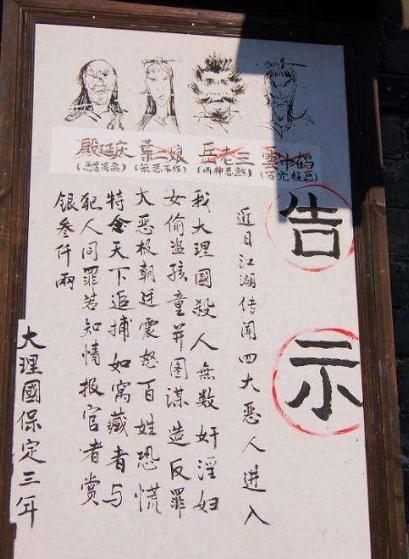 告示
段延庆 葉二娘 岳老三 雲中鶴
(惡貫滿盈) (無惡不作) (凶神惡煞) (穷凶極惡)
近日江湖传闻四大恶人进入
我大理國殺人無数奸淫妇
女偷盗孩童并图谋造反罪
大恶极朝廷震怒百姓恐慌
特令天下追捕如窝藏者与
犯人同罪若知情报官者赏
銀叁仟兩
大理國保定三年